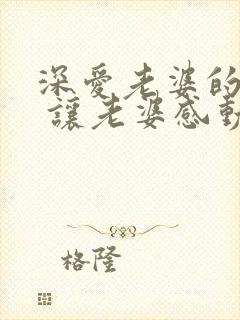 深愛老婆的
讓老婆感動
格隆